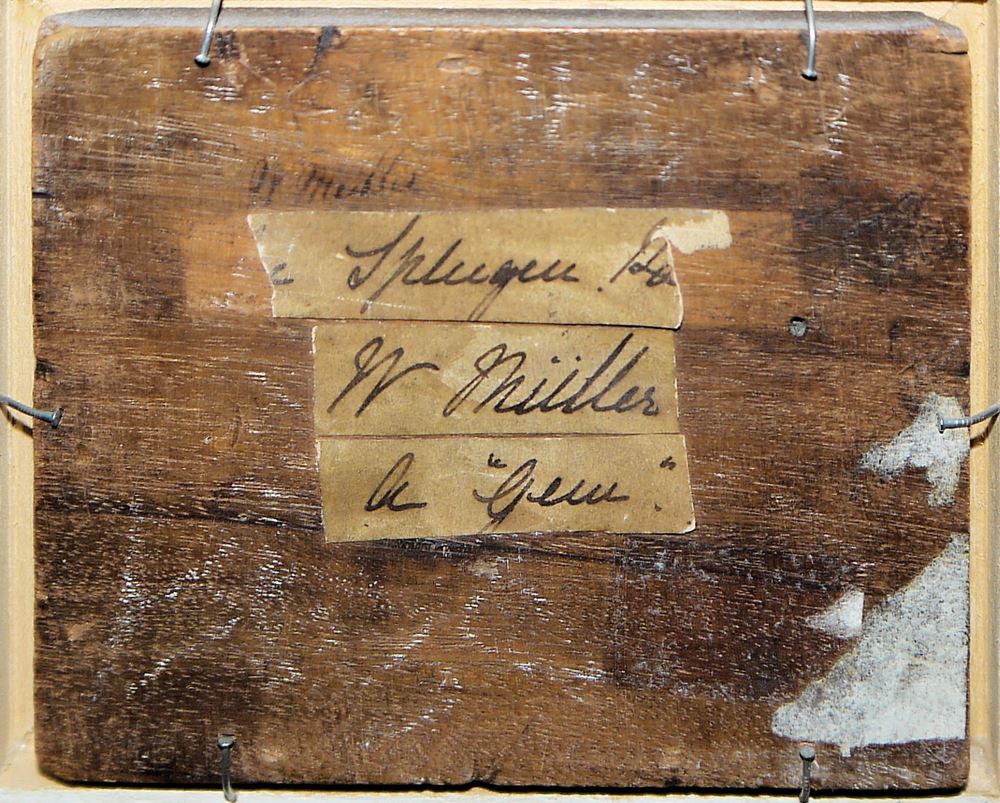 W Müller
Splugen
W Müller
A "Gem".